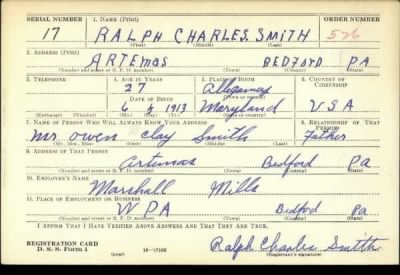 SERIAL NUMBER 1. NAME (Print) ORDER NUMBER
17 RALPH CHARLES SMITH 526
(First) (Middle) (Last)
2. ADDRESS (Print)
ARTEMAS BEDFORD PA
(Number and street or R. F. D. number) (Town) (County) (State)
3. TELEPHONE 4. AGE IN YEARS 5. PLACE OF BIRTH 6. COUNTRY OF CITIZENSHIP
27 Allegany
DATE OF BIRTH (Town or county)
6 4 1913 Maryland USA
(Exchange) (Number) (Mo.) (Day) (Yr.) (State or country)
7. NAME OF PERSON WHO WILL ALWAYS KNOW YOUR ADDRESS 8. RELATIONSHIP OF THAT PERSON
Mr Owen Clay Smith Father
(Mr., Mrs., Miss) (First) (Middle) (Last)
9. ADDRESS OF THAT PERSON
Artemas Bedford Pa
(Number and street or R. F. D. number) (Town) (County) (State)
10. EMPLOYER'S NAME
Marshall Mills
11. PLACE OF EMPLOYMENT OR BUSINESS
WPA Bedford Pa
(Number and street or R. F. D. number) (Town) (County) (State)
I AFFIRM THAT I HAVE VERIFIED ABOVE ANSWERS AND THAT THEY ARE TRUE.
REGISTRATION CARD
D. S. S. Form 1 (over) 16—17105 Ralph Charles Smith
(Registrant's signature)